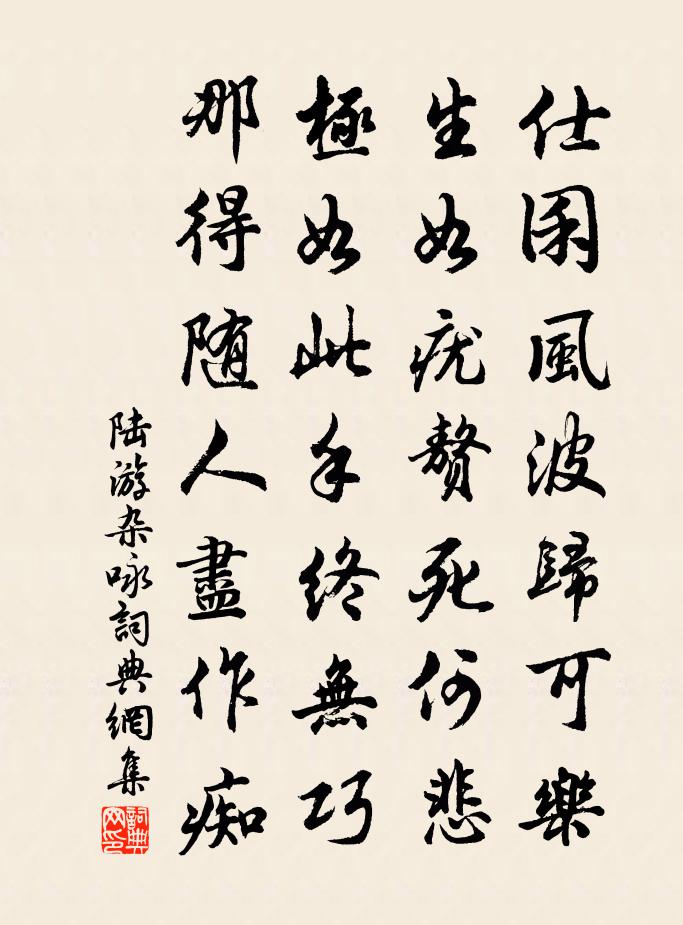 仕困風波歸可樂
生如疣贅死何悲
極如此手終無巧
那得随人盡作痴
陆游杂咏詞典網集
詞典网印